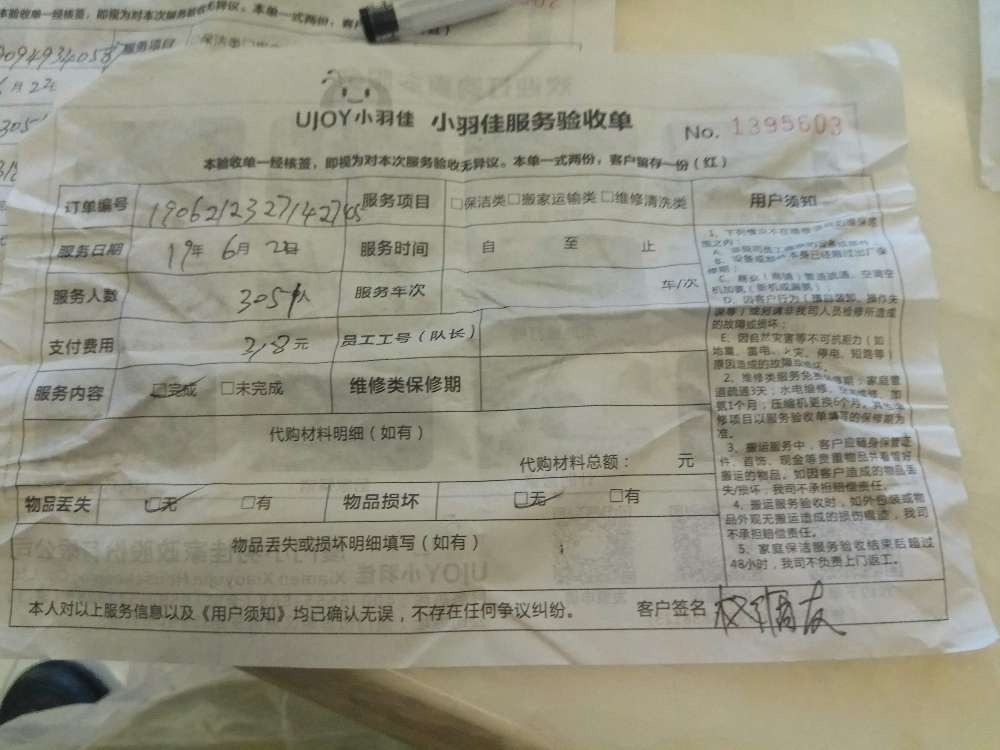 本验收单一经核签，即视为对本次服务验收无异议。本单一式两份，客户
服务项目
UJOY小羽佳 小羽佳服务验收单 No. 1395603
本验收单一经核签，即视为对本次服务验收无异议。本单一式两份，客户留存一份（红）
订单编号 服务项目 □保洁类□搬家运输类□维修清洗类
服务日期 19年 6月 2 日 服务时间 自 至 止
服务人数 3051人 服务车次 车/次
支付费用 318元 员工工号（队长）
服务内容 □完成 □未完成 维修类保修期
代购材料明细（如有）
代购材料总额： 元
物品丢失 □无 □有 物品损坏 □无 □有
物品丢失或损坏明细填写（如有）
本人对以上服务信息以及《用户须知》均已确认无误，不存在任何争议纠纷。 客户签名
用户须知
1、下列情况不在维修
围之内：
C、商业（商铺）管道疏通，空调空
机加氨（新机或漏氨）；
D、因客户行为（擅自装卸、操作失
误等）或另请非我司人员检修所造成
的故障或损坏；
E、因自然灾害等不可抗能力（如
地震、雷电、火灾、停电、短路等）
原因造成的故障
2、维修类服务免费保修期：家庭管
道疏通3天；水电维修、
氨1个月；压缩机更换6个月，其他维
修项目以服务验收单填写的保修期为
准。
3、搬运服务中，客户应随身保管证
件、首饰、现金等贵重物品并看管好
搬运的物品。如因客户造成的物品丢
失/损坏，我司不承担赔偿责任。
4、搬运服务验收时，如外包装或物
品外观无搬运造成的损伤痕迹，我司
不承担赔偿责任。
5、家庭保洁服务验收结束后超过
48小时，我司不负责上门返工。